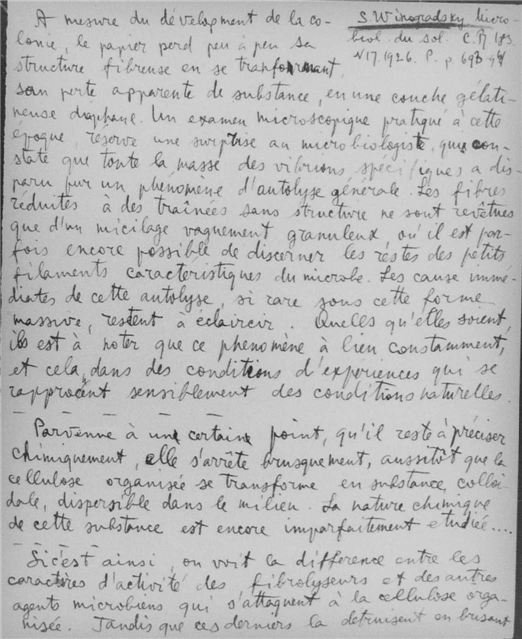 A mesure du dévelopment de la co-
lonie, le papier perd peu à peu sa
structure fibreuse en se tranformant,
S. Winogradsky Micro-
biol. du sol. C.R. 183.
N 17. 1926. P.
san perte apparente de substance, en une couche gélati-
neuse diaphane. Un examen microscopique pratiqué à cette
époque, réserve une surprise au microbiologiste, qui con-
state que toute la masse des vibrions spécifiques a dis-
paru pur un phénomène d'autolyse générale. Les fibres
réduites à des traînées sans structure ne sont revêtues
que d'un micilage vaguement granuleux où il est par-
fois encore possible de discerner les réstes des petits
filaments caracteristiques du microbe. Les cause immé-
diates de cette autolyse, si rare sous cette forme
massive, restent à éclaircir. Quelles qu'elles soient,
ils est à noter que ce phenomène à lien constamment,
et cela, dans des conditions d'experiences qui se
rapprocent sensiblement des conditions naturelles.
Parvenue à une certaine point, qu'il reste à préciser
chimiquement, elle s'arrête brusquement, aussitôt que la
cellulose organisée se transforme en substance colloi-
dale, dispersible dans le milieu. La nature chimique
de cette substance est encore imparfaitement etudiée....
Si c'est ainsi, on voit la différence entre les
caractères d'activité des fibrolyseurs et des autres
agents microbiens qui s'attaquent à la cellulose orga-
nisée. Tandis que ces derniers la detruisent en brisant